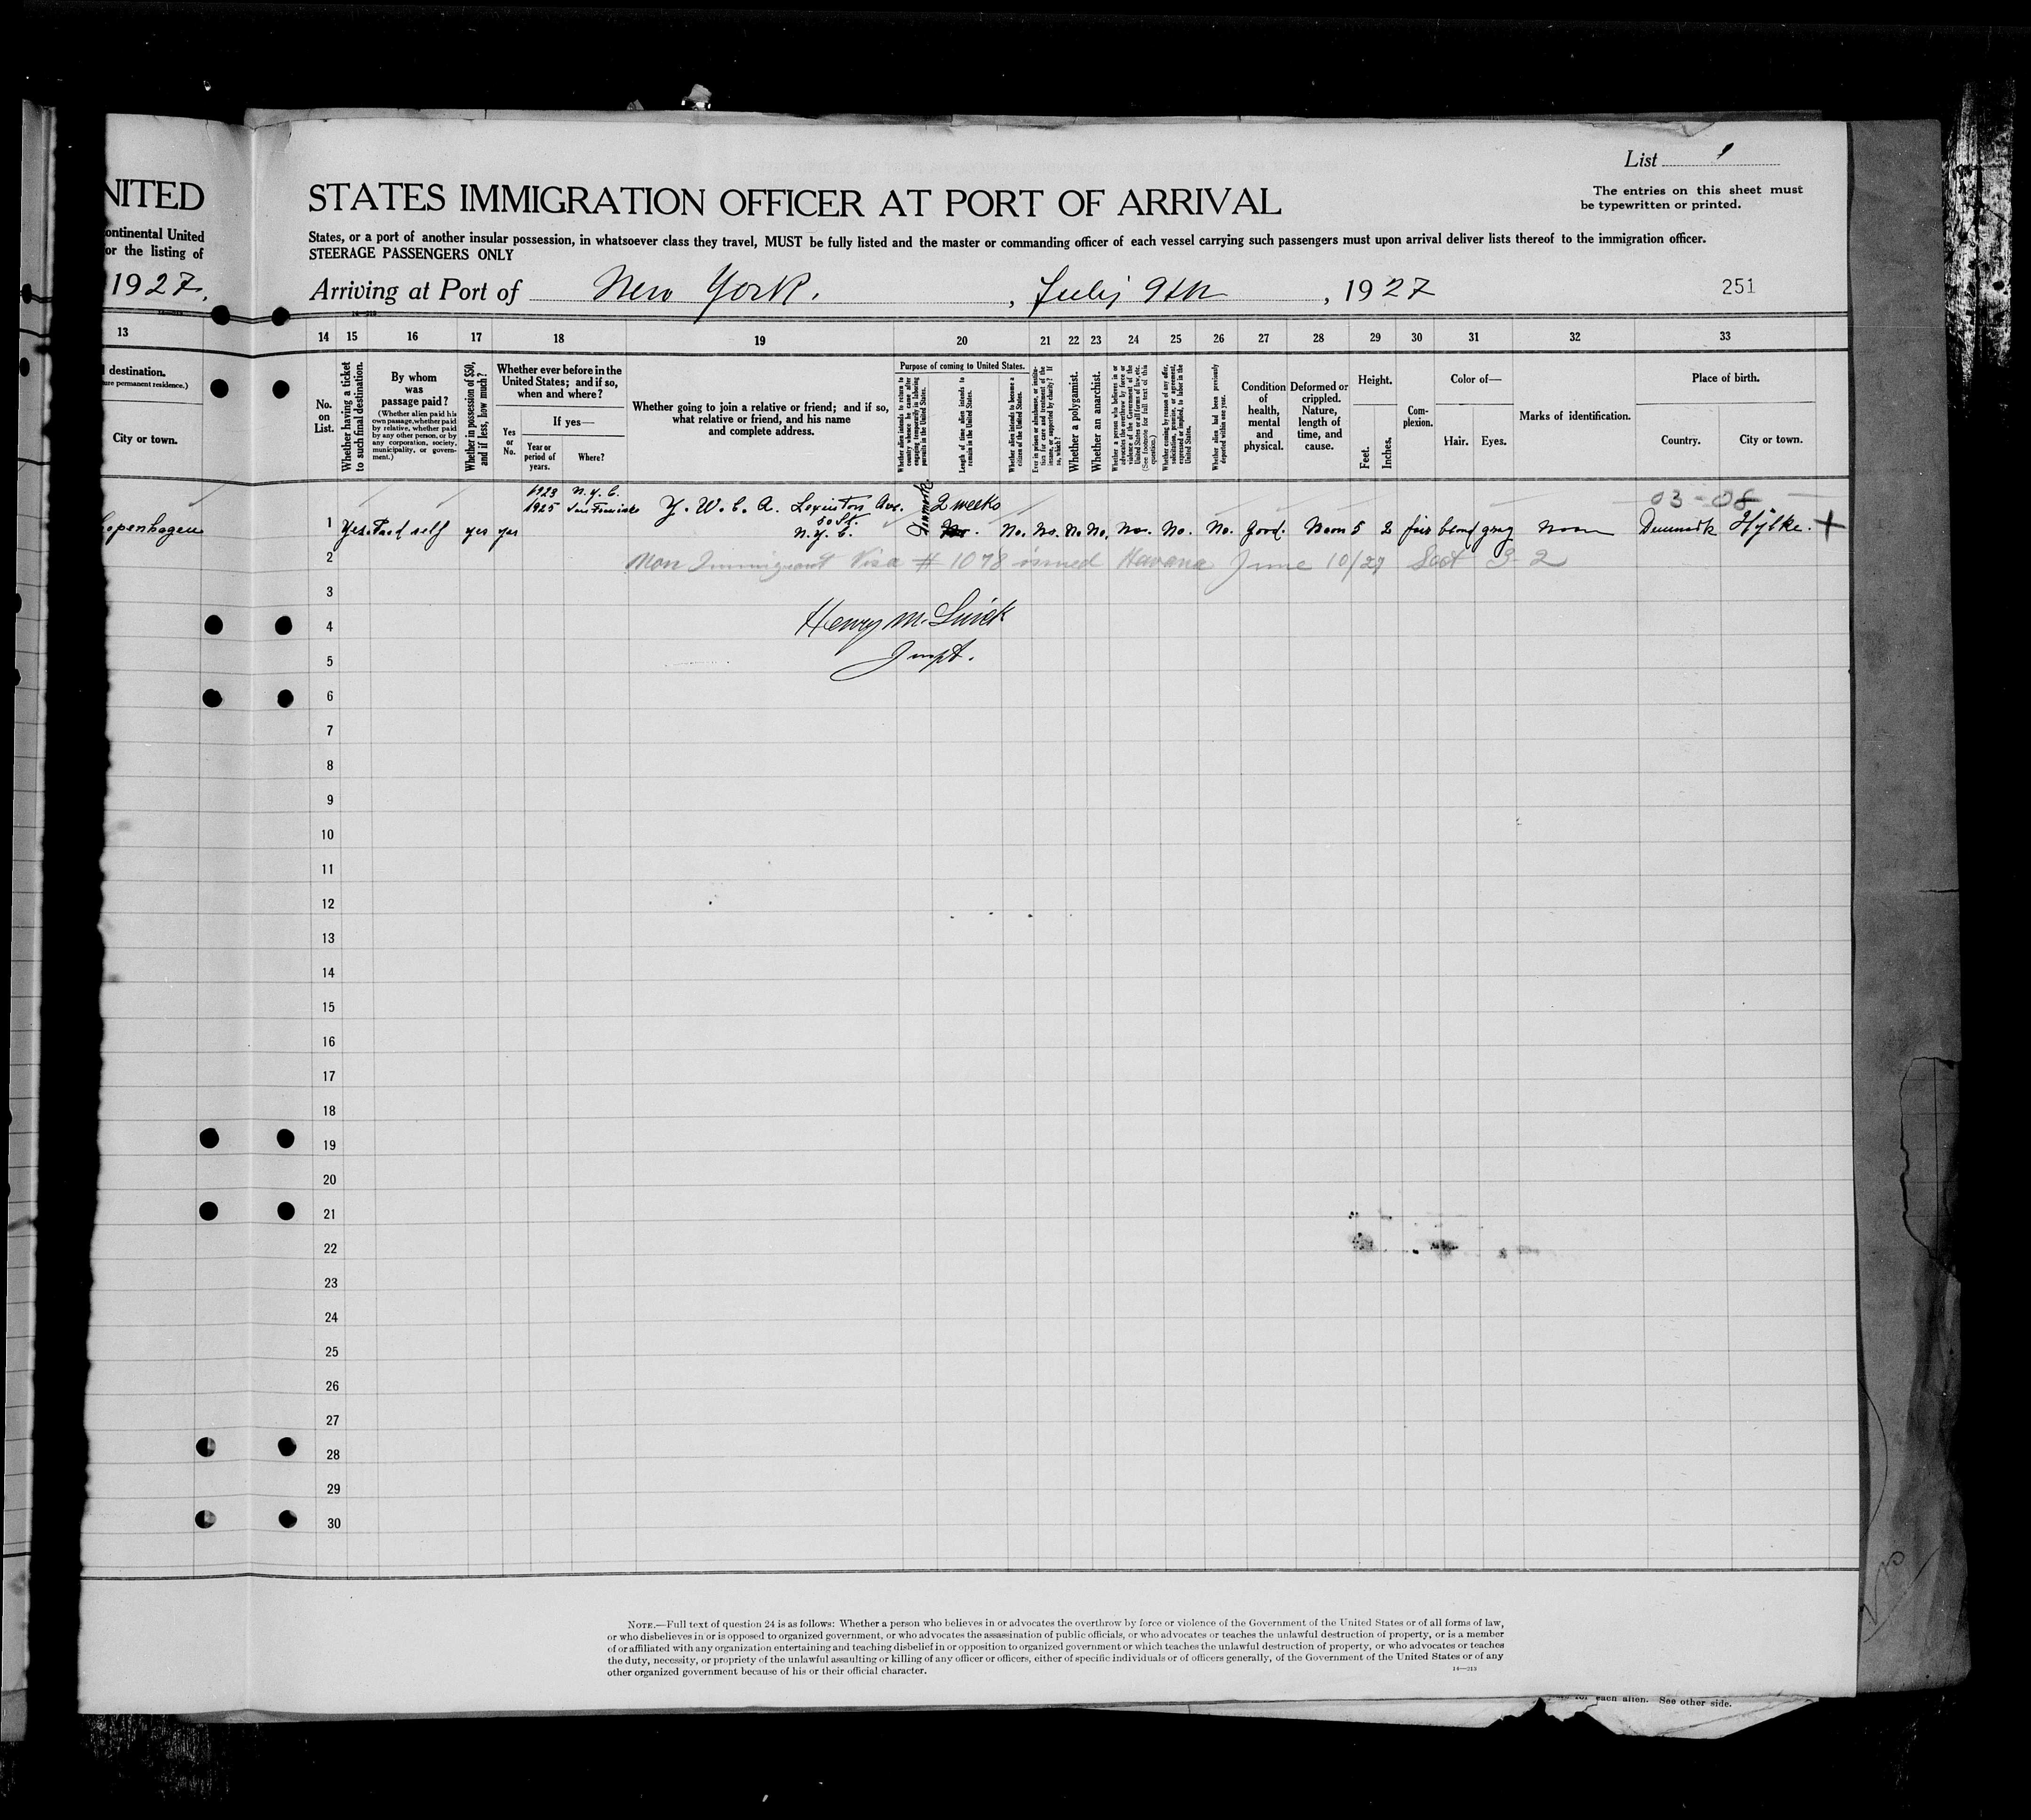 List 1
The entries on this sheet must
be typewritten or printed.
NITED
STATES IMMIGRATION OFFICER AT PORT OF ARRIVAL
ontinental United
or the listing of
States, or a port of another insular possession, in whatsoever class they travel, MUST be fully listed and the master or commanding officer of each vessel carrying such passengers must upon arrival deliver lists thereof to the immigration officer.
STEERAGE PASSENGERS ONLY
1927.
Arriving at Port of New York. , July 9th , 1927
251
13 14 15 16 17 18 19 20 21 22 23 24 25 26 27 28 29 30 31 32 33
destination.
ure permanent residence.)
City or town.
No. on List.
Whether having a ticket to such final destination.
By whom was passage paid?
(Whether alien paid his own passage, whether paid by relative, whether paid by any other person, or by any corporation, society, municipality, or government.)
Whether in possession of $50, and if less, how much?
Whether ever before in the United States; and if so, when and where?
If yes—
Yes or No.
Year or period of years.
Where?
Whether going to join a relative or friend; and if so, what relative or friend, and his name and complete address.
Purpose of coming to United States.
Whether alien intends to return to country whence he came after engaging temporarily in laboring pursuits in the United States.
Length of time alien intends to remain in the United States.
Whether alien intends to become a citizen of the United States.
Ever in prison or almshouse, or institution for care and treatment of the insane, or supported by charity? If so, which?
Whether a polygamist.
Whether an anarchist.
Whether a person who believes in or advocates the overthrow by force or violence of the Government of the United States or all forms of law, etc. (See footnote for full text of this question.)
Whether coming by reason of any offer, solicitation, promise, or agreement, expressed or implied, to labor in the United States.
Whether alien had been previously deported within one year.
Condition of health, mental and physical.
Deformed or crippled. Nature, length of time, and cause.
Height.
Feet.
Inches.
Complexion.
Color of—
Hair. Eyes.
Marks of identification.
Place of birth.
Country. City or town.
1923 N.Y.C.
1925 San Francisco Y. W. C. A. Lexinston Ave. 2 weeks 03-06
50 St.
Copenhagen 1 Yes. Paid self yes yes N.Y.C. No. No. No No. No. No. No. Good. Noon 5 2 fair blond gray Noon Denmark Hylke. +
2 Non Immigrant Visa # 1078 issued Havana June 10/27 Sect 3-2
3
4 Henry M.
5 Inspt.
6
7
8
9
10
11
12
13
14
15
16
17
18
19
20
21
22
23
24
25
26
27
28
29
30
NOTE.—Full text of question 24 is as follows: Whether a person who believes in or advocates the overthrow by force or violence of the Government of the United States or of all forms of law,
or who disbelieves in or is opposed to organized government, or who advocates the assassination of public officials, or who advocates or teaches the unlawful destruction of property, or is a member
of or affiliated with any organization entertaining and teaching disbelief in or opposition to organized government or which teaches the unlawful destruction of property, or who advocates or teaches
the duty, necessity, or propriety of the unlawful assaulting or killing of any officer or officers, either of specific individuals or of officers generally, of the Government of the United States or of any
other organized government because of his or their official character.
14—213
for each alien. See other side.